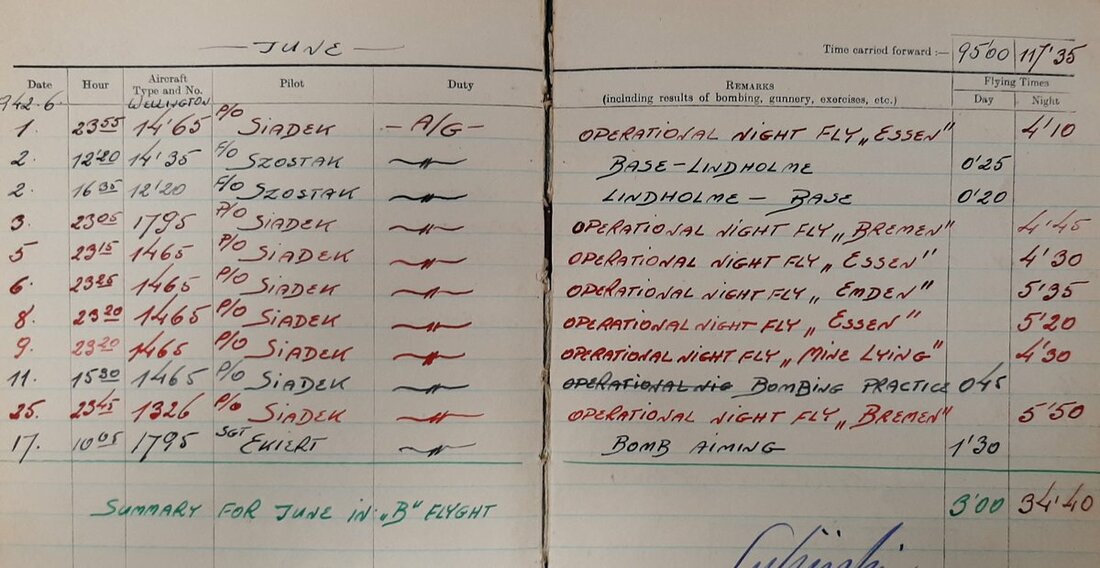 — JUNE —
Time carried forward :— 95'00 117'35
Date Hour Aircraft Type and No. Pilot Duty REMARKS (including results of bombing, gunnery, exercises, etc.) Flying Times Day Night
942.6. WELLINGTON
1. 23 55 14'65 P/O SIADEK — A/G — OPERATIONAL NIGHT FLY „ESSEN" 4'10
2. 12'20 14'35 F/O SZOSTAK —"— BASE-LINDHOLME 0'25
2. 16 35 12'20 F/O SZOSTAK —"— LINDHOLME — BASE 0'20
3. 23 05 1795 P/O SIADEK —"— OPERATIONAL NIGHT FLY „BREMEN" 4'45
5 23 15 1465 P/O SIADEK —"— OPERATIONAL NIGHT FLY „ESSEN" 4'30
6. 23 25 1465 P/O SIADEK —"— OPERATIONAL NIGHT FLY „EMDEN" 5'35
8. 23 20 1465 P/O SIADEK —"— OPERATIONAL NIGHT FLY „ESSEN" 5'20
9. 23 20 1465 P/O SIADEK —"— OPERATIONAL NIGHT FLY „MINE LYING" 4'30
11. 15 30 1465 P/O SIADEK —"— OPERATIONAL NIG BOMBING PRACTICE 0'45
25. 23 45 1326 P/O SIADEK —"— OPERATIONAL NIGHT FLY „BREMEN" 5'50
17. 10 05 1795 SGT EKIERT —"— BOMB AIMING 1'30
SUMMARY FOR JUNE IN „B" FLYGHT 3'00 34'40